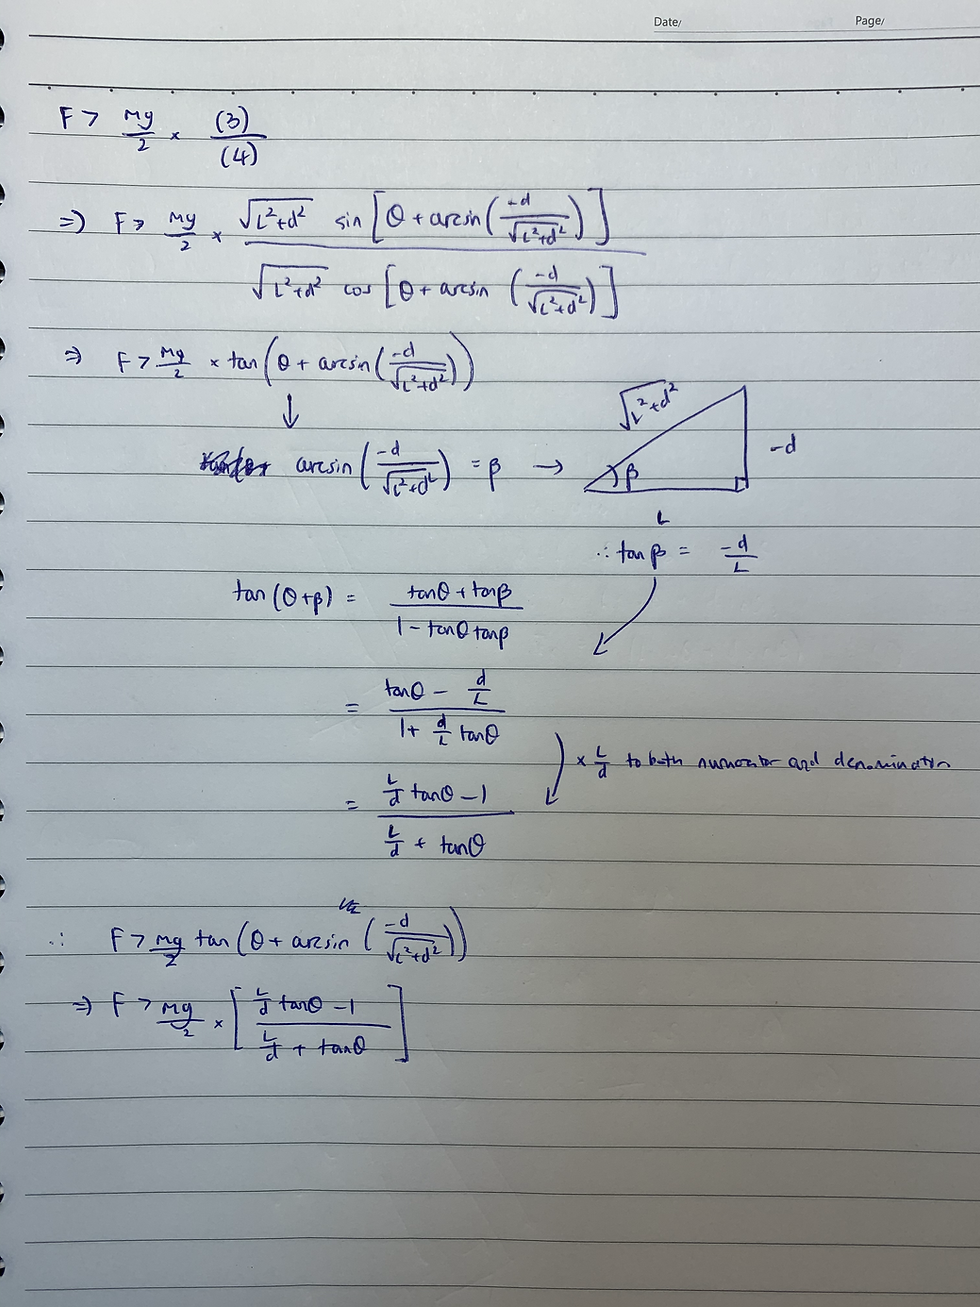 Date/ Page/
F > Mg/2 × (3)/(4)
⇒) F > Mg/2 × √(L²+d²) sin[θ + arcsin(-d/√(L²+d²))] / √(L²+d²) cos[θ + arcsin(-d/√(L²+d²))]
⇒ F > Mg/2 × tan(θ + arcsin(-d/√(L²+d²)))
↓
arcsin(-d/√(L²+d²)) = β →
√(L²+d²)
-d
β
L
∴ tanβ = -d/L
tan(θ+β) = (tanθ + tanβ)/(1 - tanθ tanβ)
= (tanθ - d/L)/(1 + d/L tanθ)
× L/d to both numerator and denominator
= (L/d tanθ - 1)/(L/d + tanθ)
∴ F > Mg/2 tan(θ + arcsin(-d/√(L²+d²)))
⇒ F > Mg/2 × [(L/d tanθ - 1)/(L/d + tanθ)]